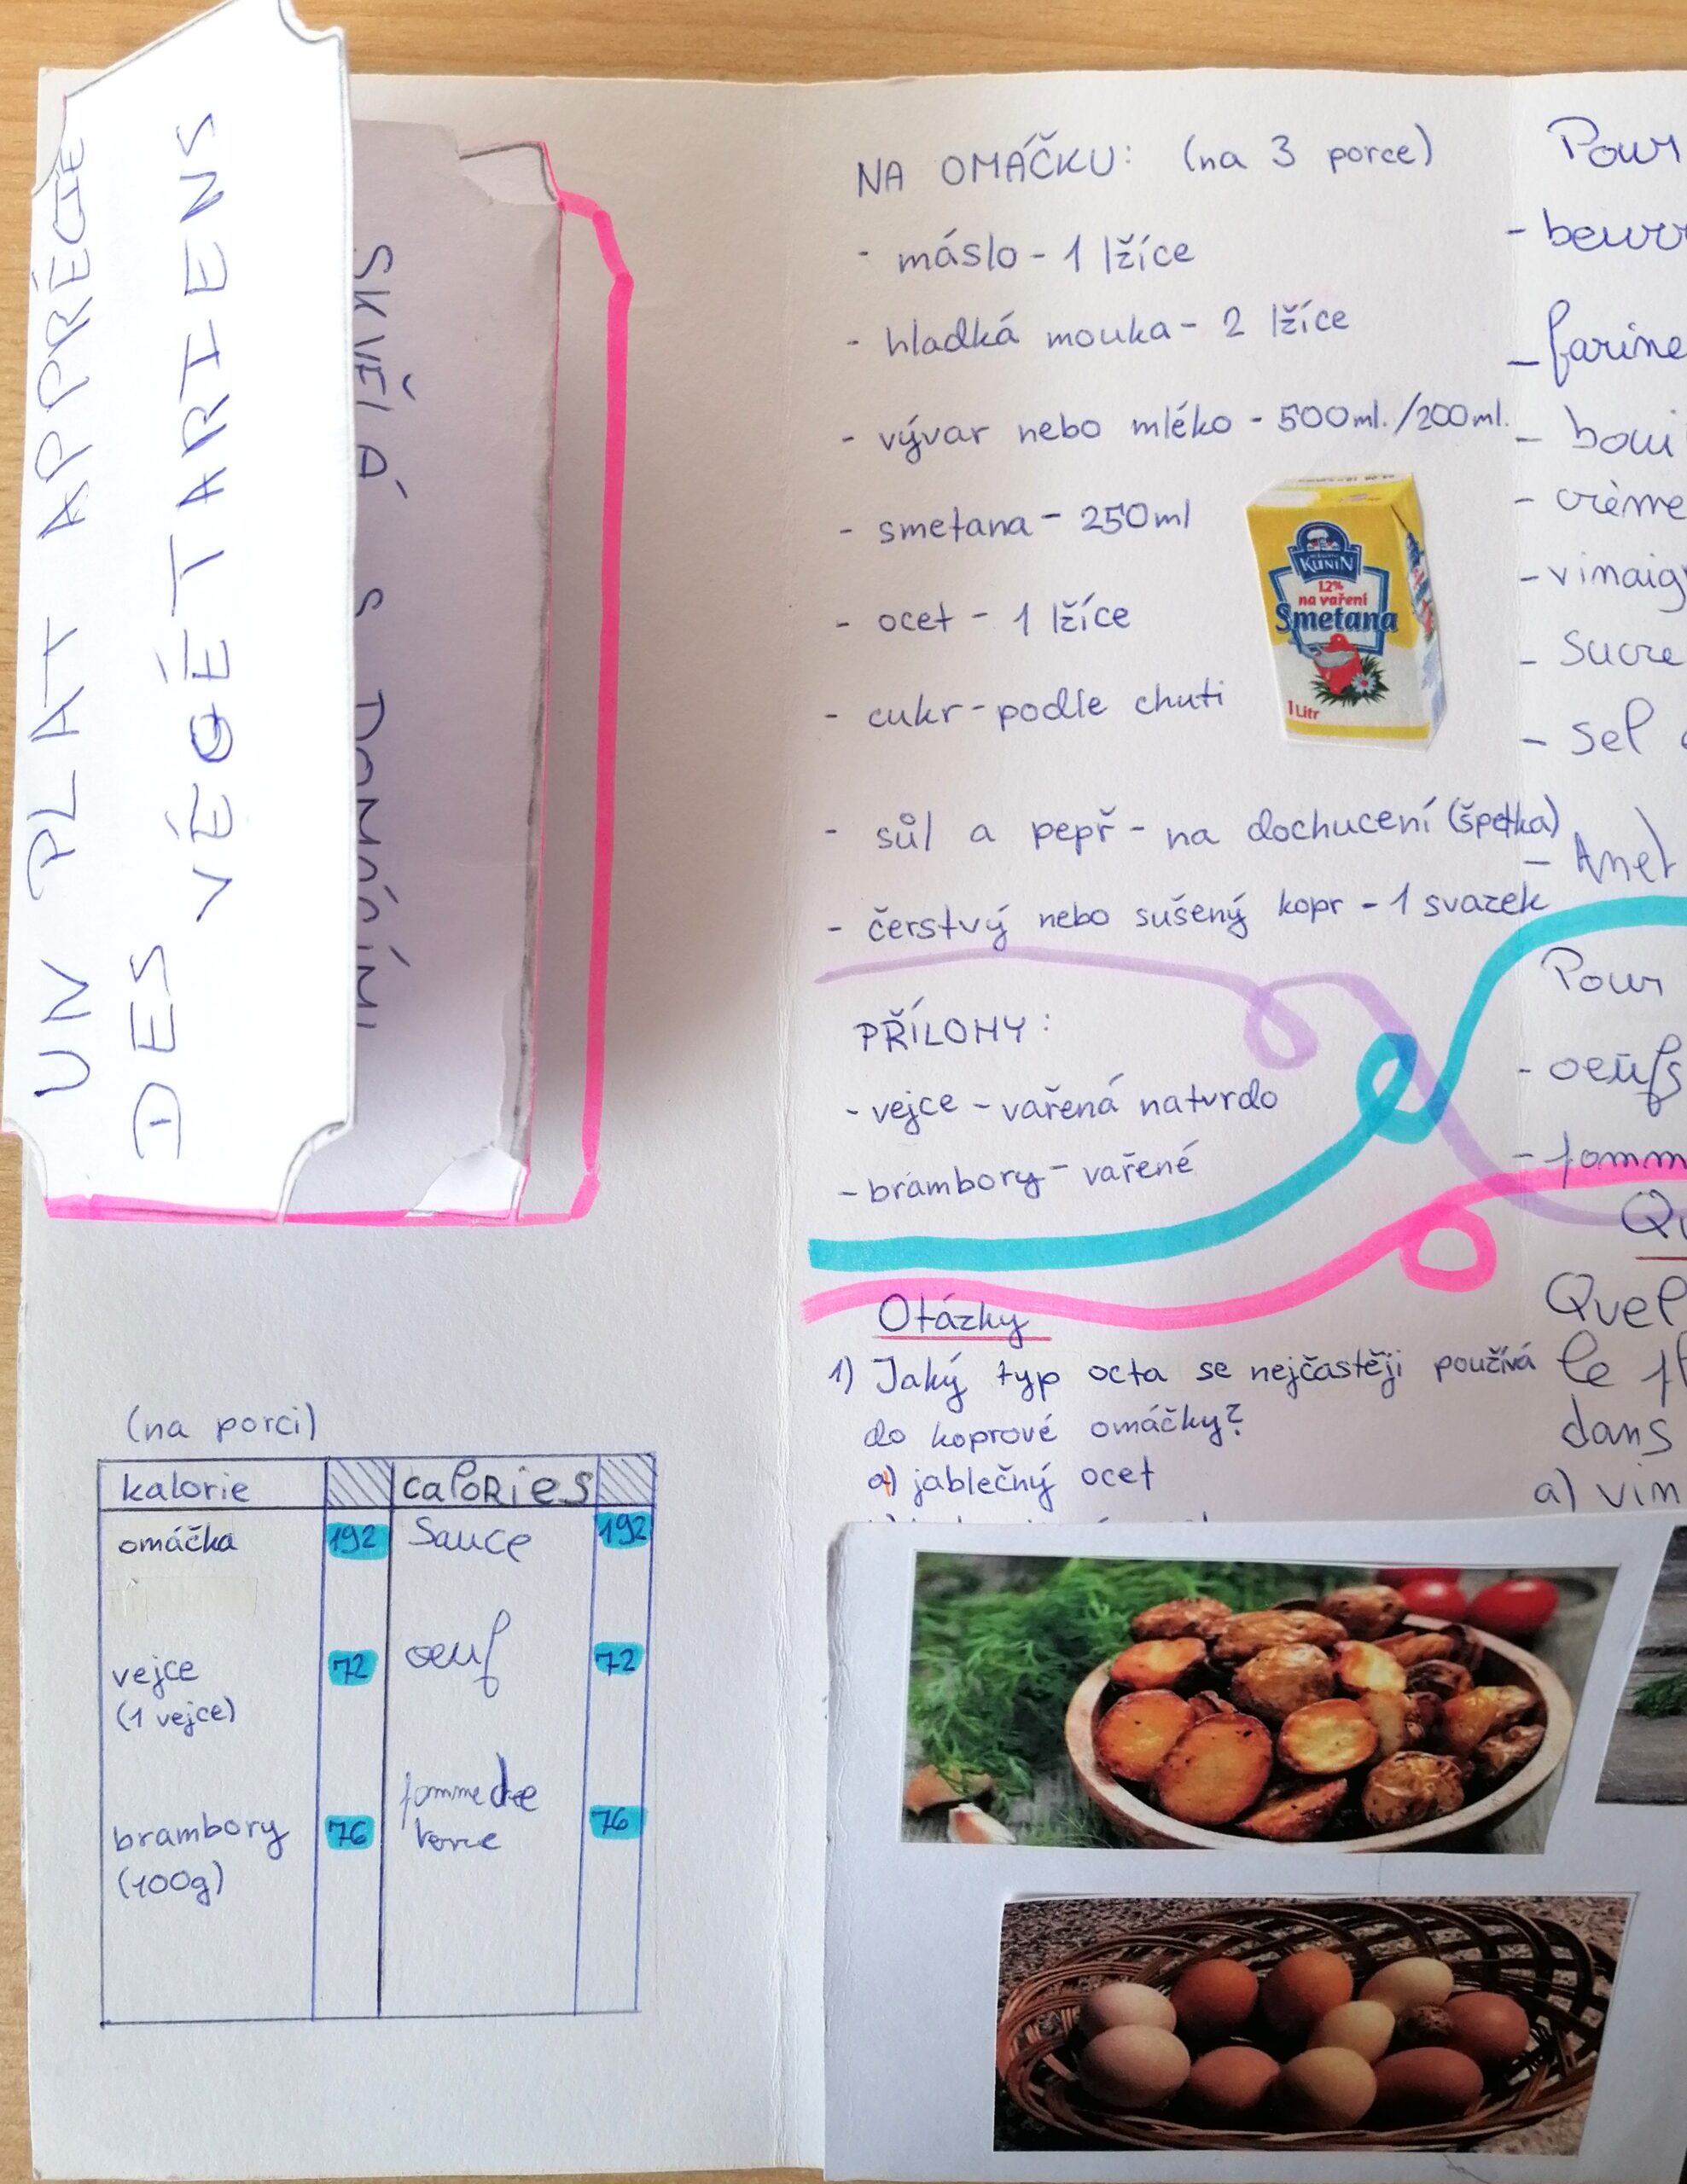 UN PLAT APPRÉCIÉ
DES VÉGÉTARIENS
SKVĚLÁ S DOMÁCÍMI
NA OMÁČKU: (na 3 porce)
- máslo - 1 lžíce
- hladká mouka - 2 lžíce
- vývar nebo mléko - 500ml./200ml.
- smetana - 250ml
- ocet - 1 lžíce
- cukr - podle chuti
- sůl a pepř - na dochucení (špetka)
- čerstvý nebo sušený kopr - 1 svazek
KUNÍN
12%
na vaření
Smetana
1 Litr
PŘÍLOHY:
- vejce - vařená natvrdo
- brambory - vařené
Otázky
1) Jaký typ octa se nejčastěji používá
do koprové omáčky?
a) jablečný ocet
Pour
-
- farine
-
- crème
- vinaig
- sucre
- sel
- Anet
Pour
- oeufs
- pomm
Qu
Quel
le pl
dans
a) vin
(na porci)
kalorie calories
omáčka 192 Sauce 192
vejce 72 oeuf 72
(1 vejce)
brambory 76 pomme de 76
(100g) terre